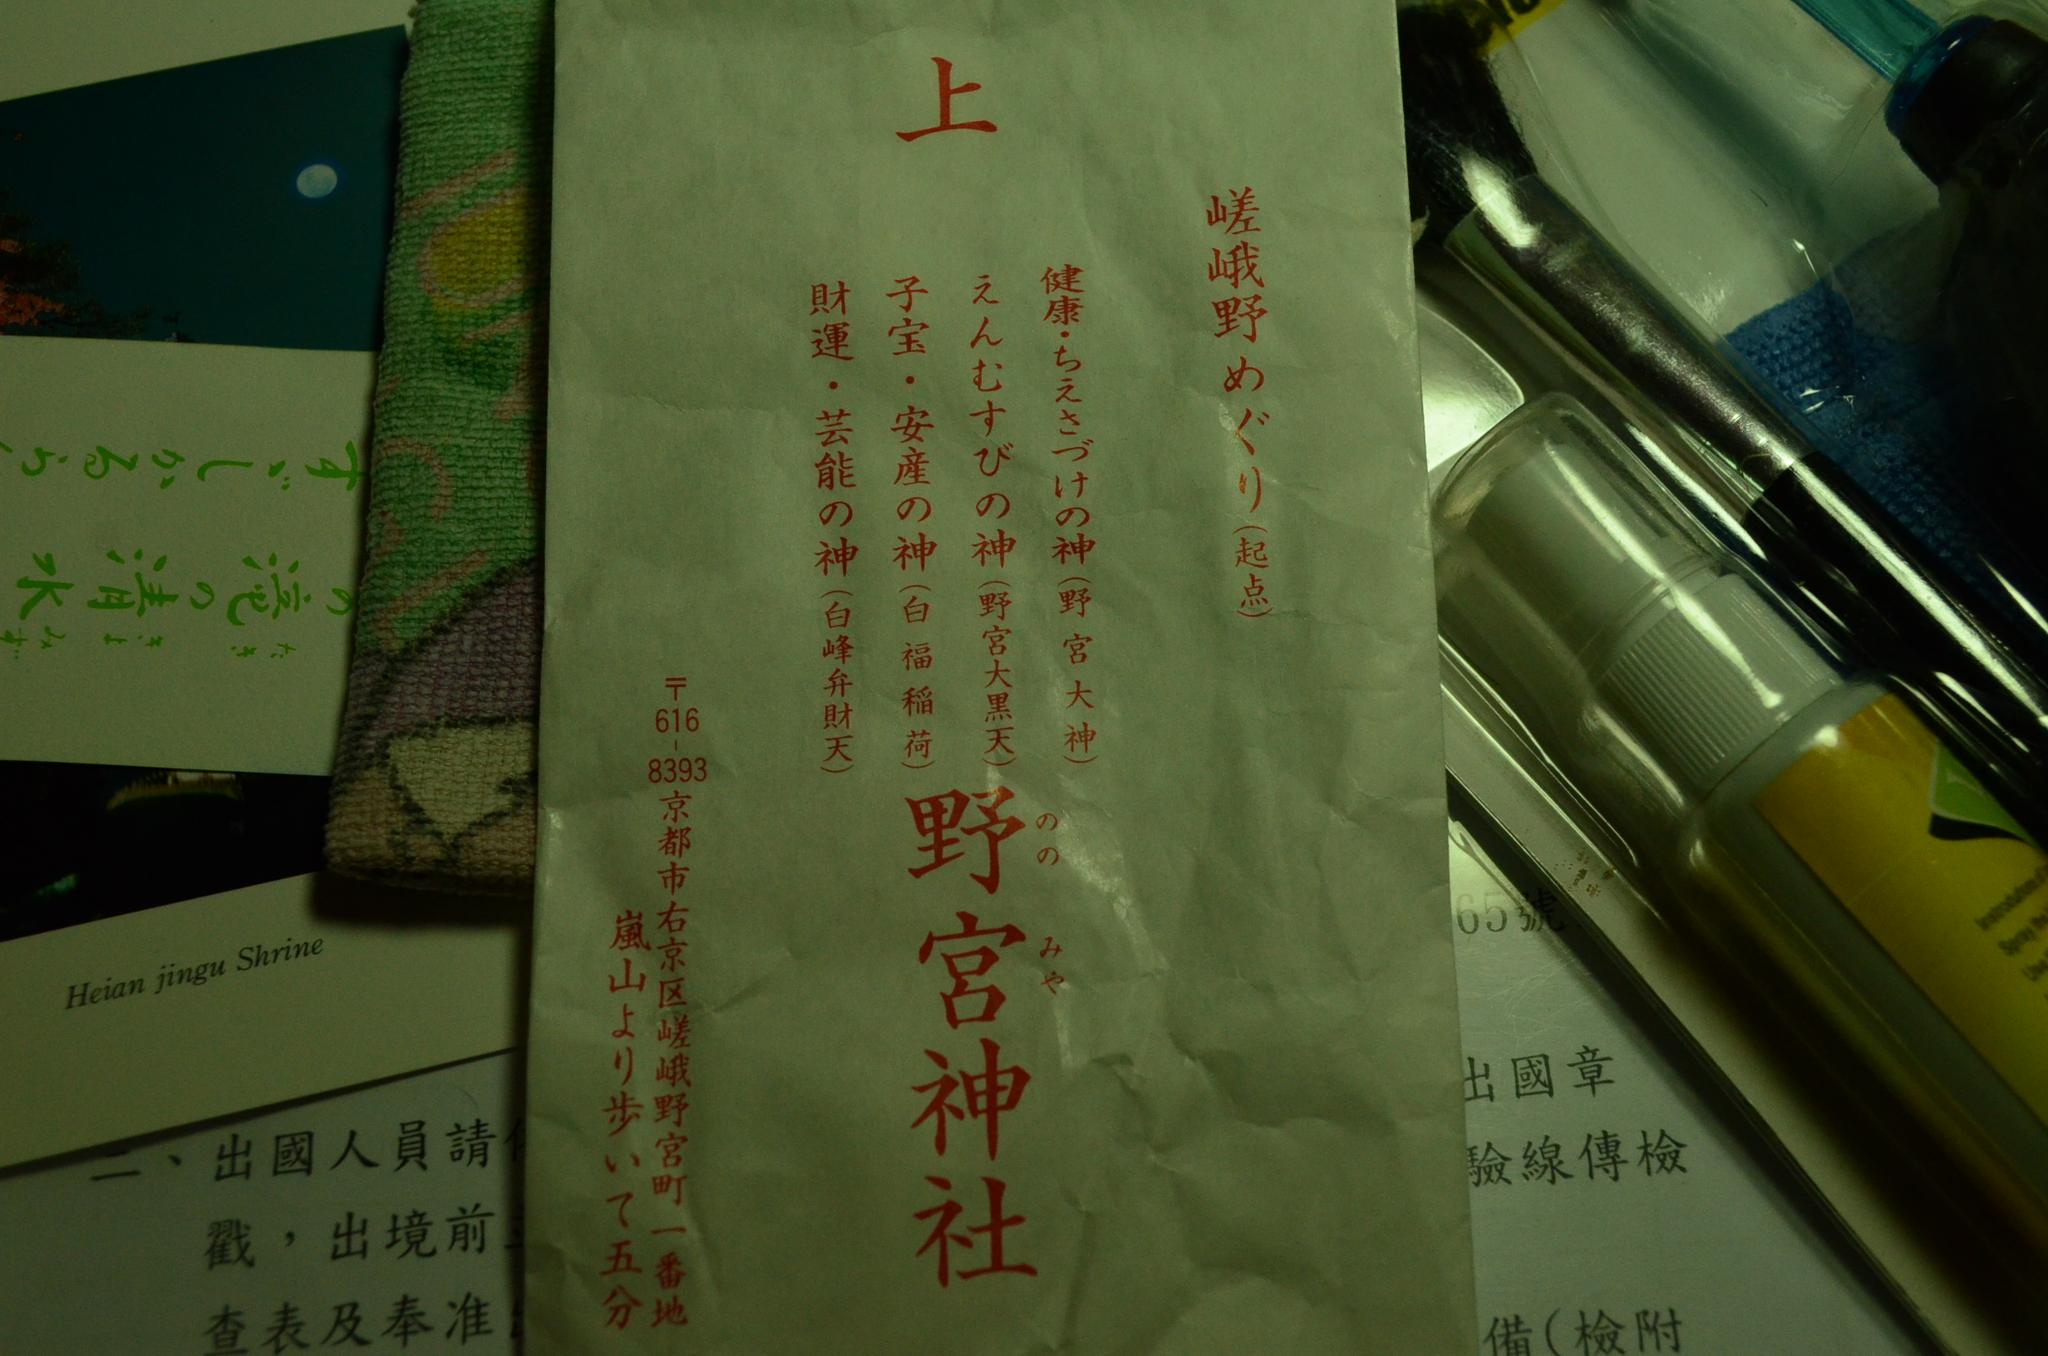 上
嵯峨野めぐり（起点）
健康・ちえさづけの神（野宮大神）
えんむすびの神（野宮大黒天）
子宝・安産の神（白福稲荷）
財運・芸能の神（白峰弁財天）
野宮神社
ののみや
〒616-8393京都市右京区嵯峨野宮町一番地
嵐山より歩いて五分
の滝の清水
たききよみず
Heian jingu Shrine
二、出國人員請
戳，出境前
查表及奉准
65號
出國章
驗線傳檢
備(檢附